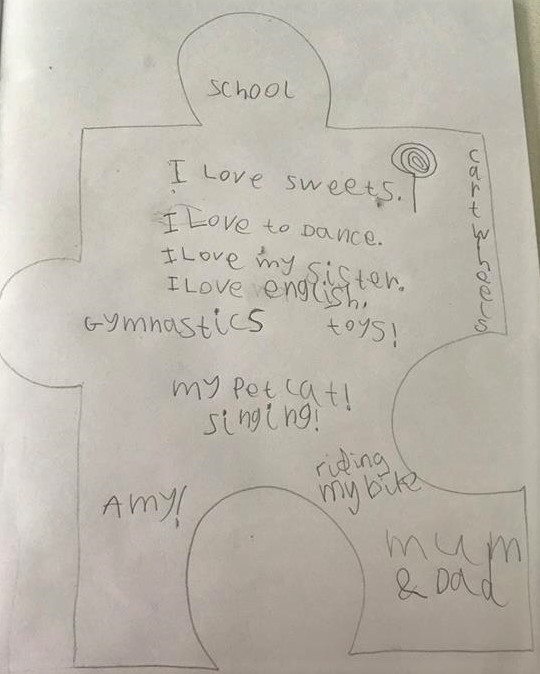 school
I Love sweets.
I Love to Dance.
I Love my sister.
I Love english.
Gymnastics
toys!
my pet cat!
singing!
riding
my bike
Amy!
mum
& Dad